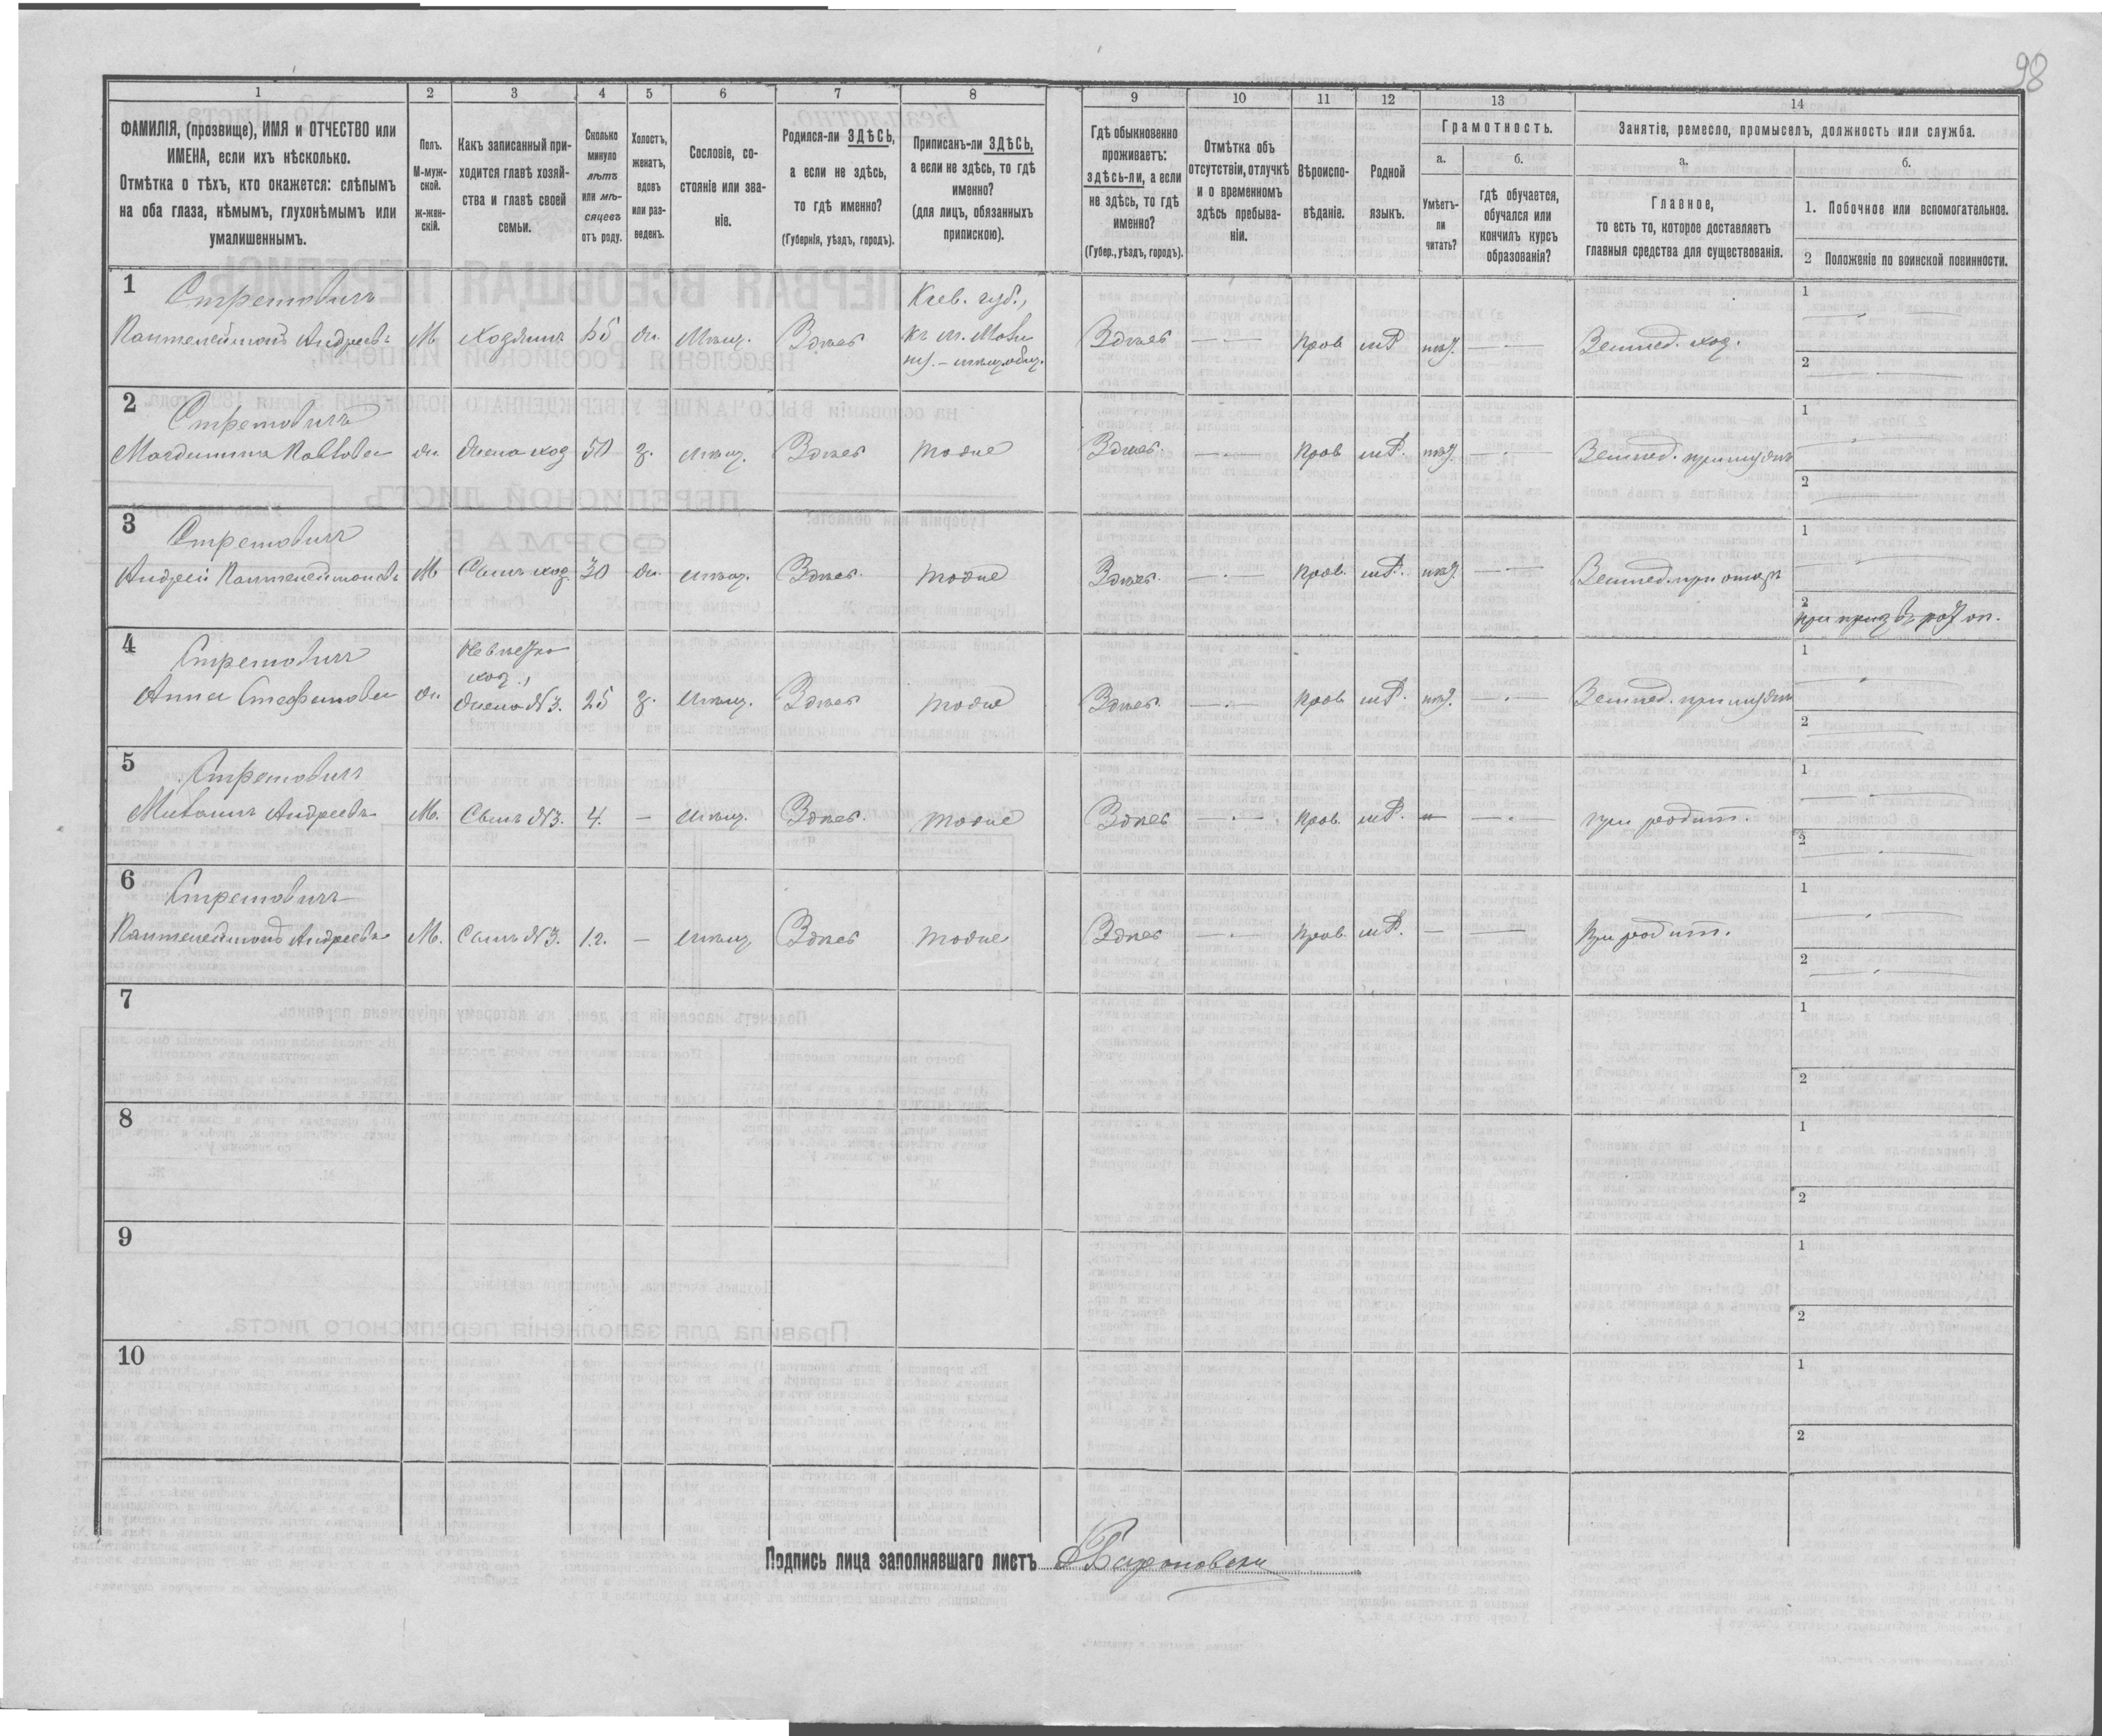 98
1 2 3 4 5 6 7 8 9 10 11 12 13 14
ФАМИЛІЯ, (прозвище), ИМЯ и ОТЧЕСТВО или
ИМЕНА, если ихъ нѣсколько.
Отмѣтка о тѣхъ, кто окажется: слѣпымъ
на оба глаза, нѣмымъ, глухонѣмымъ или
умалишеннымъ.
Полъ.
М-муж-
ской.
ж-жен-
скій.
Какъ записанный при-
ходится главѣ хозяй-
ства и главѣ своей
семьи.
Сколько
минуло
лѣтъ
или мѣ-
сяцевъ
отъ роду.
Холостъ,
женатъ,
вдовъ
или раз-
веденъ.
Сословіе, со-
стояніе или зва-
ніе.
Родился-ли ЗДѢСЬ,
а если не здѣсь,
то гдѣ именно?
(Губернія, уѣздъ, городъ).
Приписанъ-ли ЗДѢСЬ,
а если не здѣсь, то гдѣ
именно?
(для лицъ, обязанныхъ
припискою).
Гдѣ обыкновенно
проживаетъ:
здѣсь-ли, а если
не здѣсь, то гдѣ
именно?
(Губер., уѣздъ, городъ).
Отмѣтка объ
отсутствіи, отлучкѣ
и о временномъ
здѣсь пребыва-
ніи.
Вѣроиспо-
вѣданіе.
Родной
языкъ.
Грамотность.
а.
Умѣетъ-
ли
читать?
б.
гдѣ обучается,
обучался или
кончилъ курсъ
образованія?
Занятіе, ремесло, промыселъ, должность или служба.
а.
Главное,
то есть то, которое доставляетъ
главныя средства для существованія.
б.
1. Побочное или вспомогательное.
2 Положеніе по воинской повинности.
1
Стретовичъ
Пантелеймонъ Андреевъ М Хозяинъ 55 ж. Мѣщ. Здѣсь
Кіев. губ.,
Здѣсь — Прав Землед. хоз.
1
2
2
Стретовичъ
Магдалина Павлова ж. Жена хоз 50 з. Мѣщ. Здѣсь тоже Здѣсь. — Прав Землед. при мужѣ
1
2
3
Стретовичъ
Андрей Пантелеймоновъ М Сынъ хоз. 30 ж. мѣщ. Здѣсь. тоже Здѣсь. — Прав. Землед. при отцѣ
1
2
4
Стретовичъ
Анна Стефанова ж. Невѣстка
хоз.,
жена №3. 25 з. Мѣщ. Здѣсь тоже Здѣсь. — Прав Землед. при мужѣ
1
2
5
Стретовичъ
Михаилъ Андреевъ М. Сынъ №3. 4. — Мѣщ. Здѣсь. тоже Здѣсь — Прав. — При родит.
1
2
6
Стретовичъ
Пантелеймонъ Андреевъ М. Сынъ №3. 1 г. — Мѣщ Здѣсь тоже Здѣсь — Прав. — — При родит.
1
2
7
1
2
8
1
2
9
1
2
10
1
2
Подпись лица заполнявшаго листъ